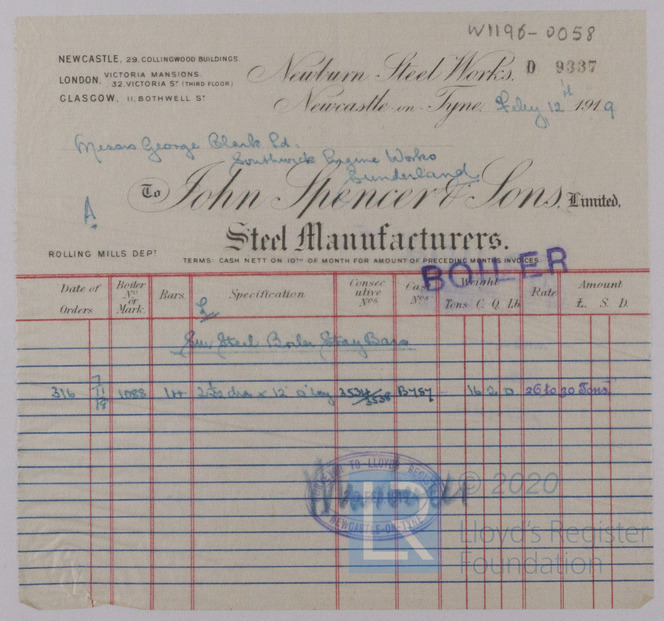 W1196-0058
NEWCASTLE, 29, COLLINGWOOD BUILDINGS
LONDON, VICTORIA MANSIONS, 32, VICTORIA ST (THIRD FLOOR)
GLASGOW, 11, BOTHWELL ST
Newburn Steel Works,
D 9337
Newcastle-on-Tyne, Feby 12th 1919
Messrs George Clark Ld.
Southwick Engine Works
Sunderland
A.
To John Spencer & Sons, Limited,
Steel Manufacturers.
ROLLING MILLS DEPT
TERMS: CASH NETT ON 10TH OF MONTH FOR AMOUNT OF PRECEDING MONTHS INVOICES
BOILER
Date of Orders
Boiler No or Mark.
Bars
Specification
Consecutive Nos
Cast Nos
Weight
Tons C. Q. Lb
Rate
Amount
£. S. D.
Steel Boiler Stay Bars
316 1088 14 dia x 12' 0" long 3534/3538 B757 16 2 0 26 to 30 Tons
TO LLOYDS
NEWCASTLE-ON-TYNE
LR
© 2020
Lloyd's Register
Foundation